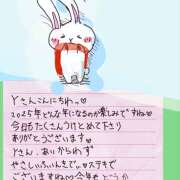 Yさんこんにちわっ♡
2025年どんな年になるのか楽しみですね♡
今日もたくさんつけとめて下さり
ありがとうございます♥
Yさん、あいかわらず
やさしいふいんきで、ステキで
ございますね♡今年もどうか